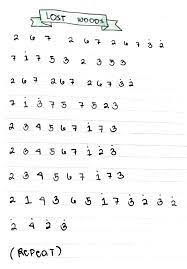 LOST WOODS
2 6 7 2 6 7 2 6 7 3̇ 2̇
7 1̇ 7 5 3 2 3 5 3
2 6 7 2 6 7 2 6 7 3̇ 2̇
7 1̇ 3̇ 7 5 7 5 2 3
2 3 4 5 6 7 1̇ 7 3
2 3 4 5 6 7 1̇ 2̇ 3̇
2 3 4 5 6 7 1̇ 7 3
2 1 4 3 6 5 1̇ 7 3̇ 2̇ 3̇ 2̇
2̇ 4̇ 2̇ 3̇
(REPEAT)